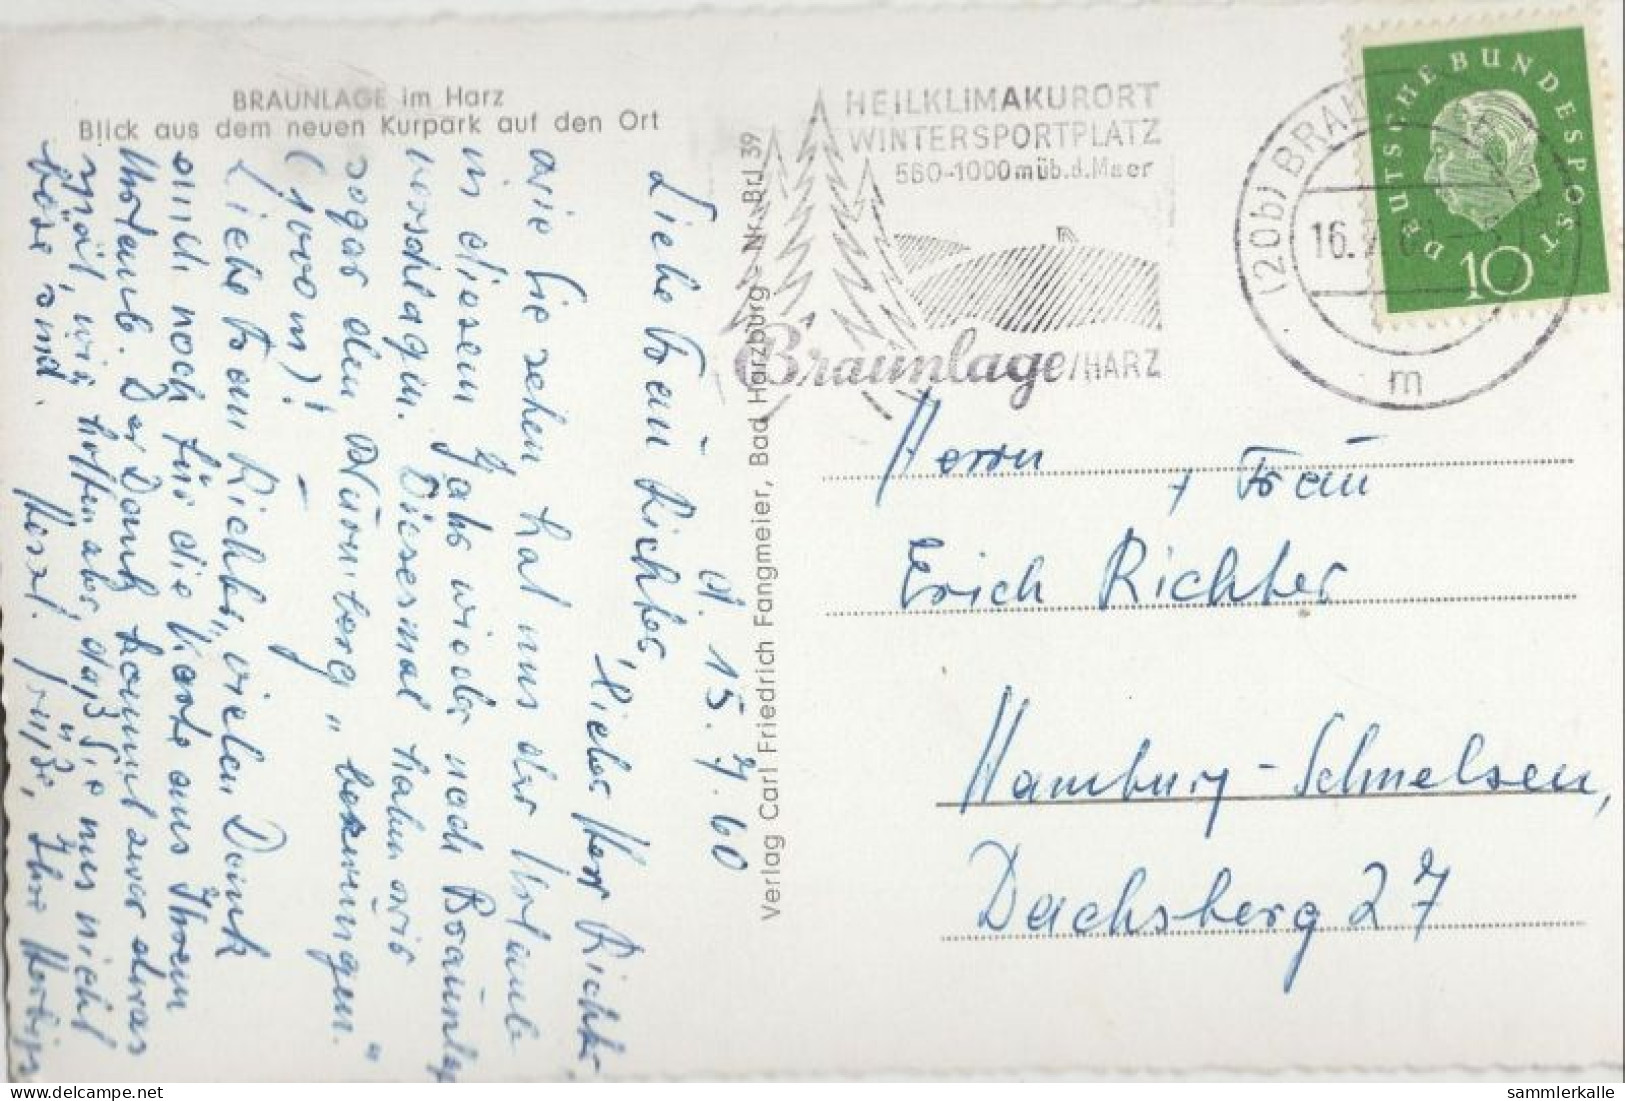 BRAUNLAGE im Harz
Blick aus dem neuen Kurpark auf den Ort
d. 15.7.60
Liebe Frau Richter,
lieber Herr Richter
wie Sie sehen hat uns der Urlaub
in diesem Jahr wieder nach Braunlage
verschlagen. Diesesmal haben wir
sogar den „Wurmberg" bezwungen.
(1000 m)!
Liebe Frau Richter, vielen Dank
auch noch für die Karte aus Ihrem
Urlaub. Der Dank kommt zwar etwas
spät, wir hoffen aber, daß Sie uns nicht
böse sind. Herzl. Grüße, Ihre
Verlag Carl Friedrich Fangmeier, Bad Harzburg - Nr. Brl 39
HEILKLIMAKURORT
WINTERSPORTPLATZ
560-1000 m üb. d. Meer
Braunlage/HARZ
(20b) BRAU
16.
m
DEUTSCHE BUNDESPOST
10
Herrn
+ Frau
Erich Richter
Hamburg-Schnelsen,
Dachsberg 27
delcampe.net
sammlerkalle